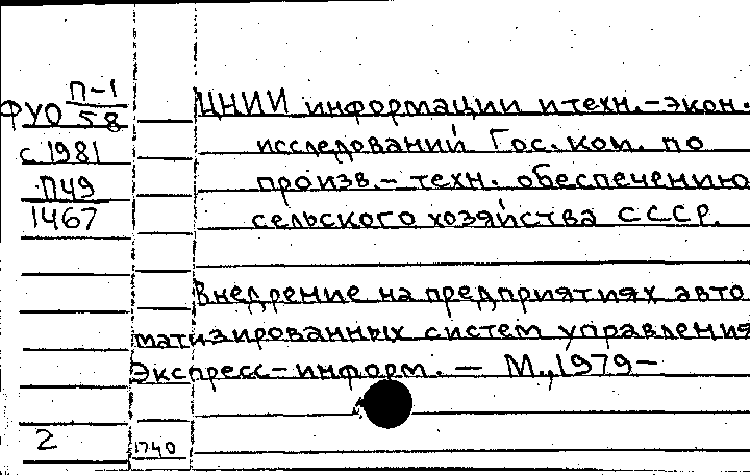 П-1
ФУО 58
с 1981
П49
1467
ЦНИИ информации и техн.-экон.
исследований Гос. ком. по
произв.- техн. обеспечению
сельского хозяйства СССР.
Внедрение на предприятиях авто
матизированных систем управления
Экспресс-информ. — М., 1979—
2
1740